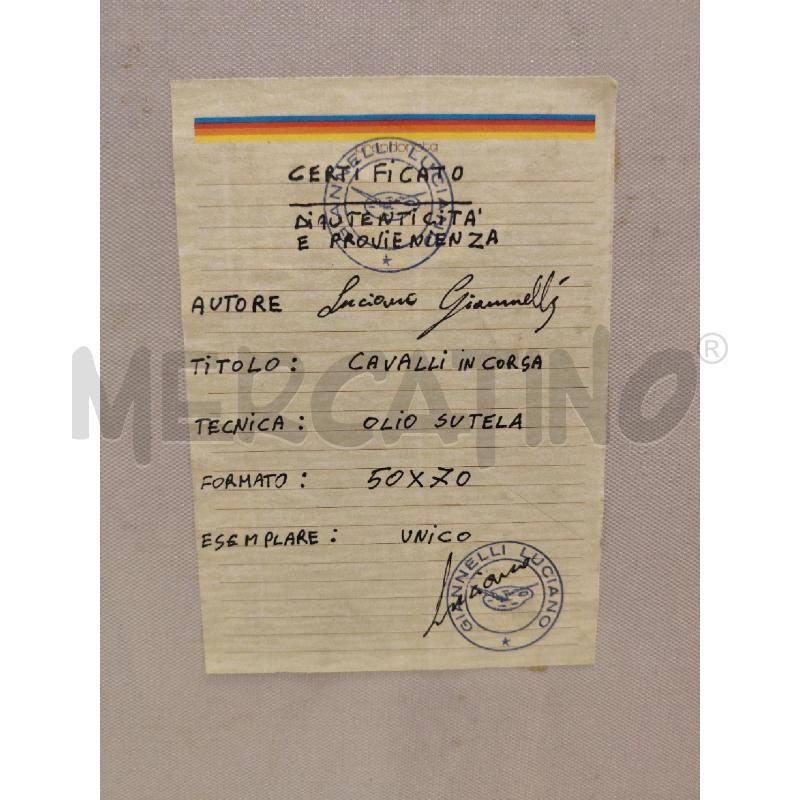 CERTIFICATO
DI AUTENTICITA'
E PROVIENIENZA
GIANNELLI LUCIANO
AUTORE Luciano Giannelli
TITOLO: CAVALLI IN CORSA
MERCATINO®
TECNICA: OLIO SUTELA
FORMATO: 50X70
ESEMPLARE: UNICO
GIANNELLI LUCIANO
Luciano